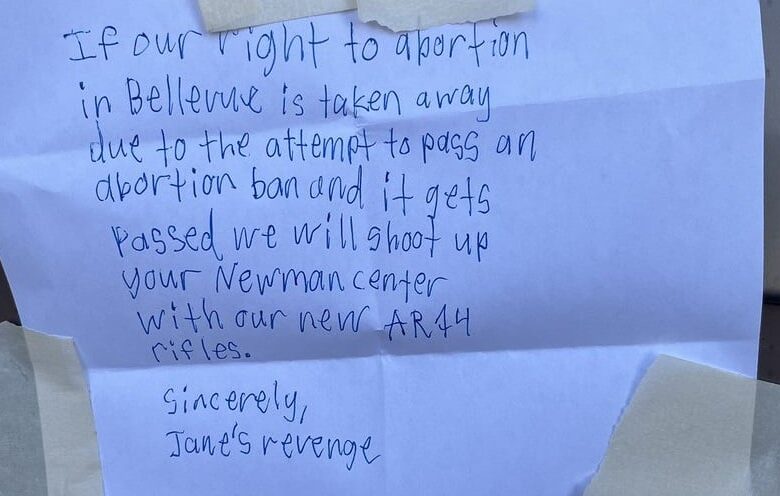 If our right to abortion
in Bellevue is taken away
due to the attempt to pass an
abortion ban and it gets
passed we will shoot up
your Newman center
with our new AR14
rifles.
Sincerely,
Jane's revenge